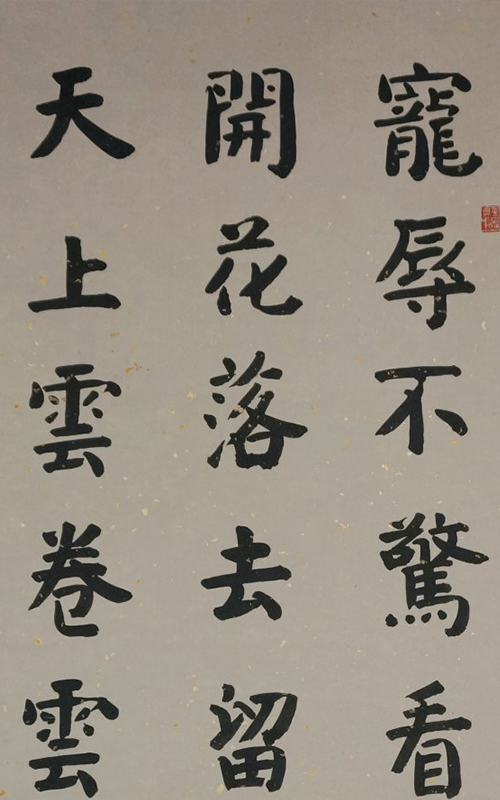 寵辱不驚看
開花落去留
天上雲卷雲